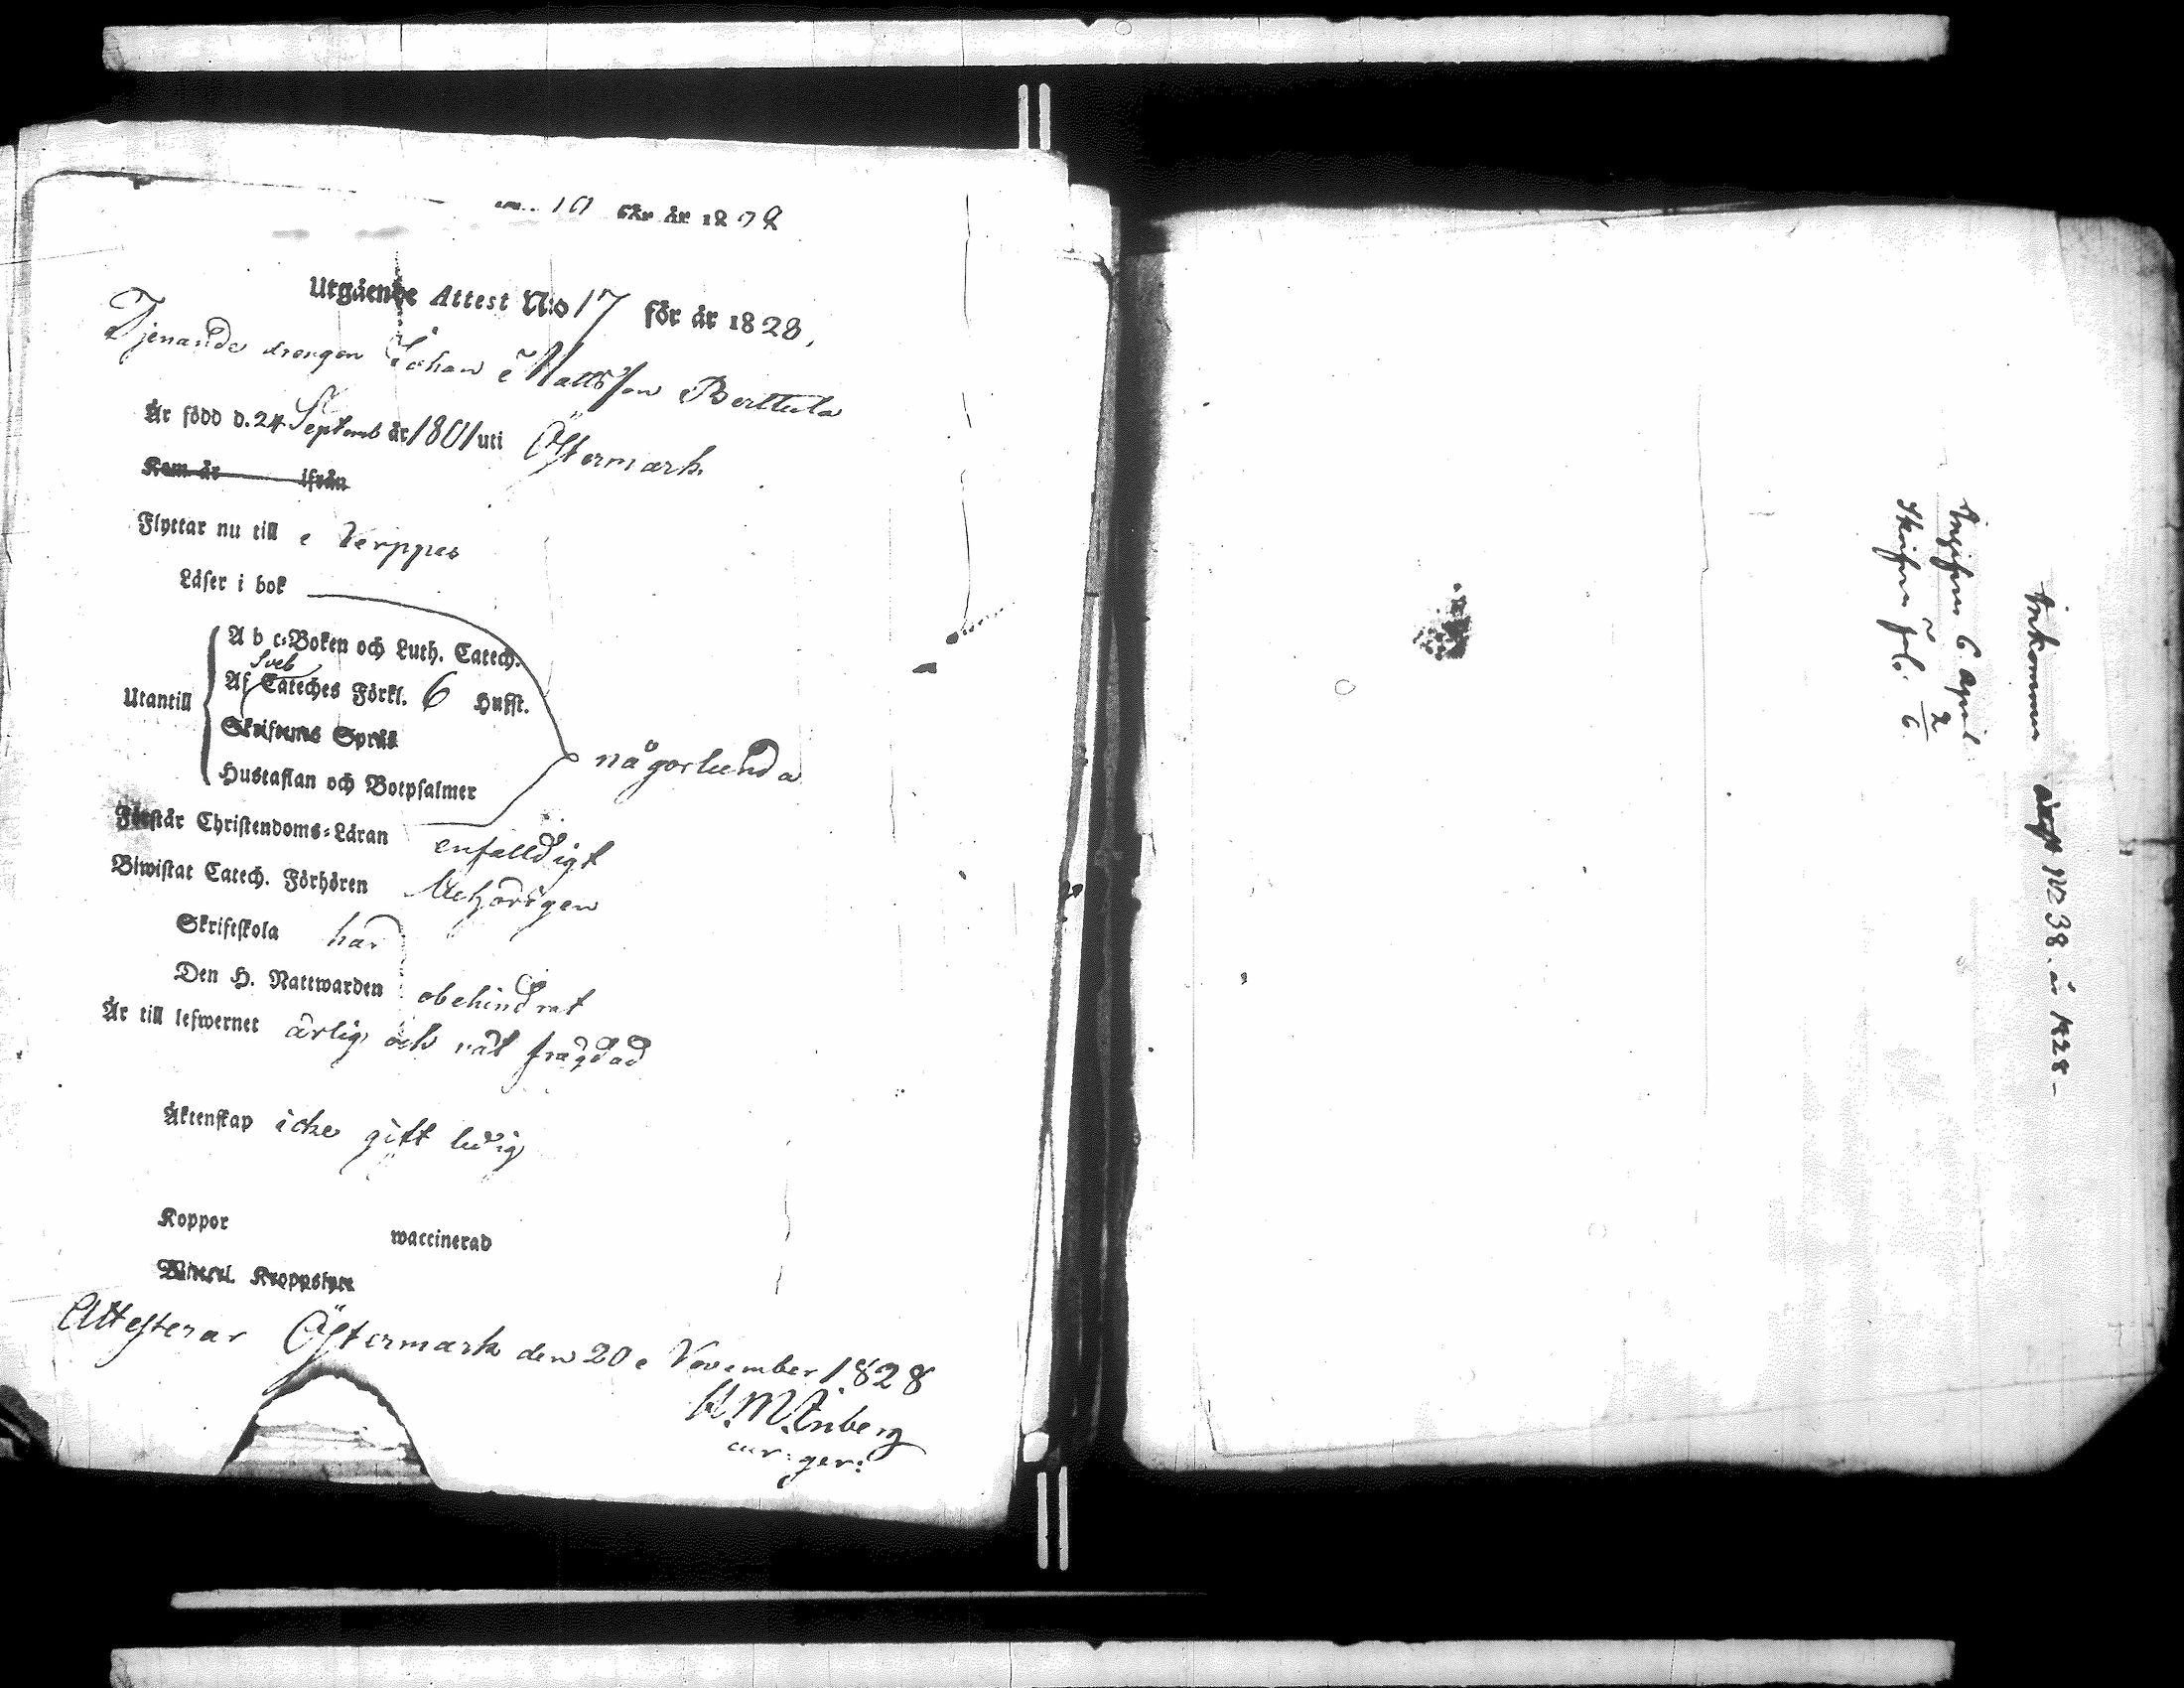 för år 18
Utgående Attest N:o 17 för år 1828.
Tjenande drengen Johan Mattsson Berttula
Är född d. 24 Septemb år 1801 uti Östermark
Kom år ifrån
Flyttar nu till Nerppes
Läser i bok
Utantill
A b c-Boken och Luth. Catech.
Sveb
Af Cateches Förkl. 6 Hufst.
Skriftens Språk
Hustaflan och Botpsalmer
någorlunda
Förstår Christendoms-Läran enfalldigt
Biwistat Catech. Förhören
Skriftskola har
Den H. Nattwarden obehindrat
Är till lefwernet ärlig och väl frägdad
Äktenskap icke gift ledig
Koppor waccinerad
Attesterar Östermark den 20 November 1828
cur: ger:
Inkommen attest No 38. år 1828-
6 April